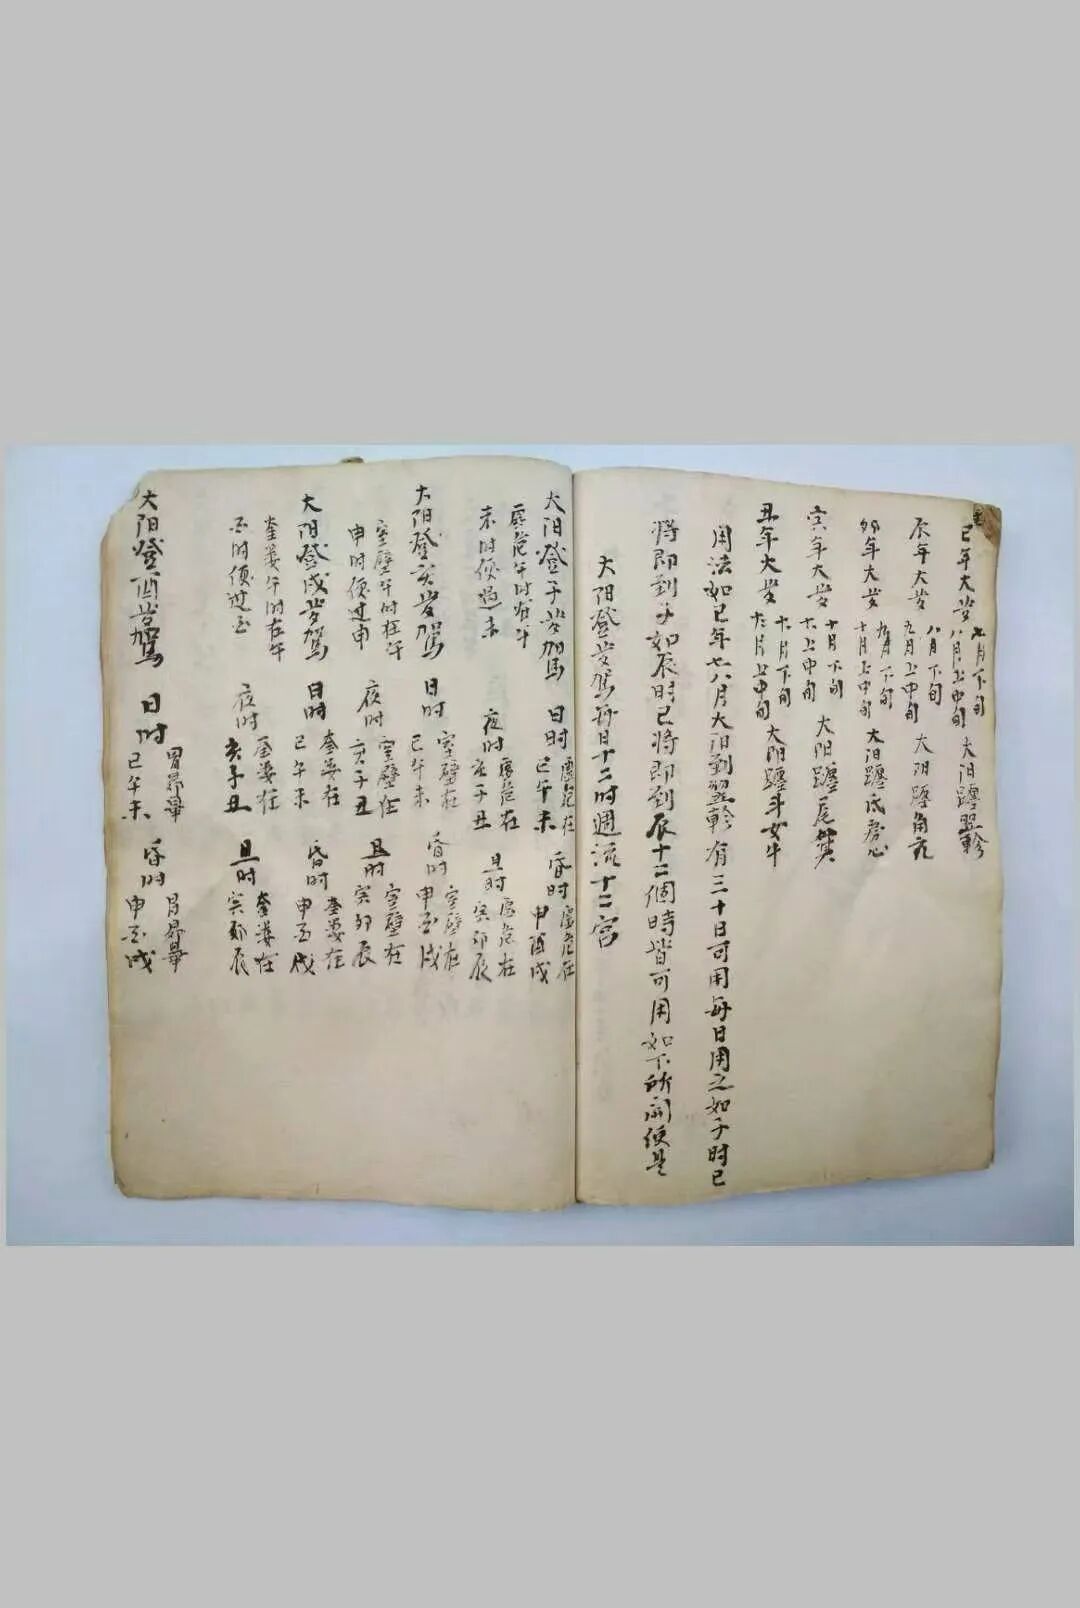 巳年太岁 七月下旬 八月上中旬 太阳躔翌軫
辰年太岁 八月下旬 九月上中旬 太阳躔角亢
卯年太岁 九月下旬 十月上中旬 太阳躔氐房心
寅年太岁 十月下旬 十一上中旬 太阳躔尾箕
丑年太岁 十一月下旬 十二月上中旬 太阳躔斗女牛
用法如巳年七八月太阳到翌軫有三十日可用每日用之如子时巳
将即到子如辰时巳将即到辰十二個時皆可用如下所開便是
太阳登岁驾每日十二时週流十二宫
太阳登子岁驾 日时 虚危在巳午未 昏时 虚危在申酉戌
虚危午时在午未时便過未 夜时 虚危在亥子丑 旦时 虚危在寅卯辰
太阳登亥岁驾 日时 室壁在巳午未 昏时 室壁在申酉戌
室壁午时在午申时便过申 夜时 室壁在亥子丑 旦时 室壁在寅卯辰
太阳登戌岁驾 日时 奎婁在巳午未 昏时 奎婁在申酉戌
奎婁午时在午酉时便过酉 夜时 奎婁在亥子丑 旦时 奎婁在寅卯辰
太阳登酉岁驾 日时 胃昴畢巳午未 昏时 胃昴畢申酉戌